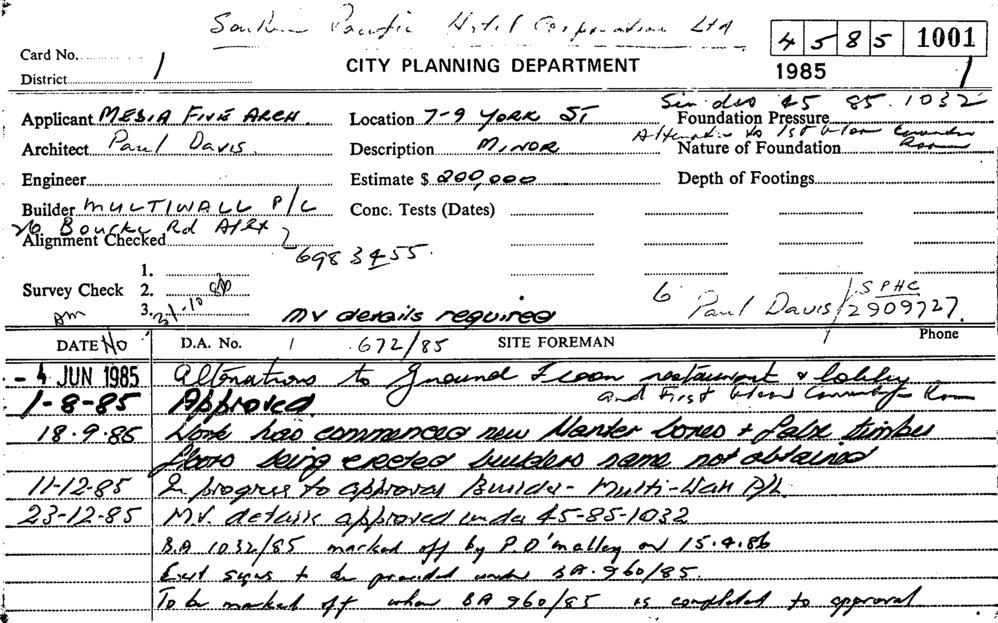 Southern Pacific Hotel Corporation Ltd
4 5 8 5 1001
Card No. 1
District
CITY PLANNING DEPARTMENT
1985 1
45 85.1032
Applicant MEDIA FIVE ARCH. Location 7-9 YORK ST Foundation Pressure
Alteration to 1st floor
Architect Paul Davis. Description MINOR Nature of Foundation Room
Engineer Estimate $ 200,000 Depth of Footings
Builder MULTIWALL P/L Conc. Tests (Dates)
26 Bourke Rd Alex
Alignment Checked
698 3455.
1.
Survey Check 2.
3. 31.10
MV details required
Paul Davis / SPHC 2909727.
Phone
DATE No D.A. No. 1 .672/85 SITE FOREMAN
- 4 JUN 1985 Alterations to Ground Floor restaurant & lobby
and First Floor Room
1-8-85 Approved.
18.9.85 Work has commenced new planter boxes + false timber
floors being erected builders name not obtained
11-12-85 In progress to approval Builder - Multi-Wall P/L.
23-12-85 M.V. details approved under 45-85-1032
B.A 1032/85 marked off by P. O'Malley on 15.4.86
Exit signs to be provided under BA.960/85.
To be marked off when BA 960/85 is completed to approval